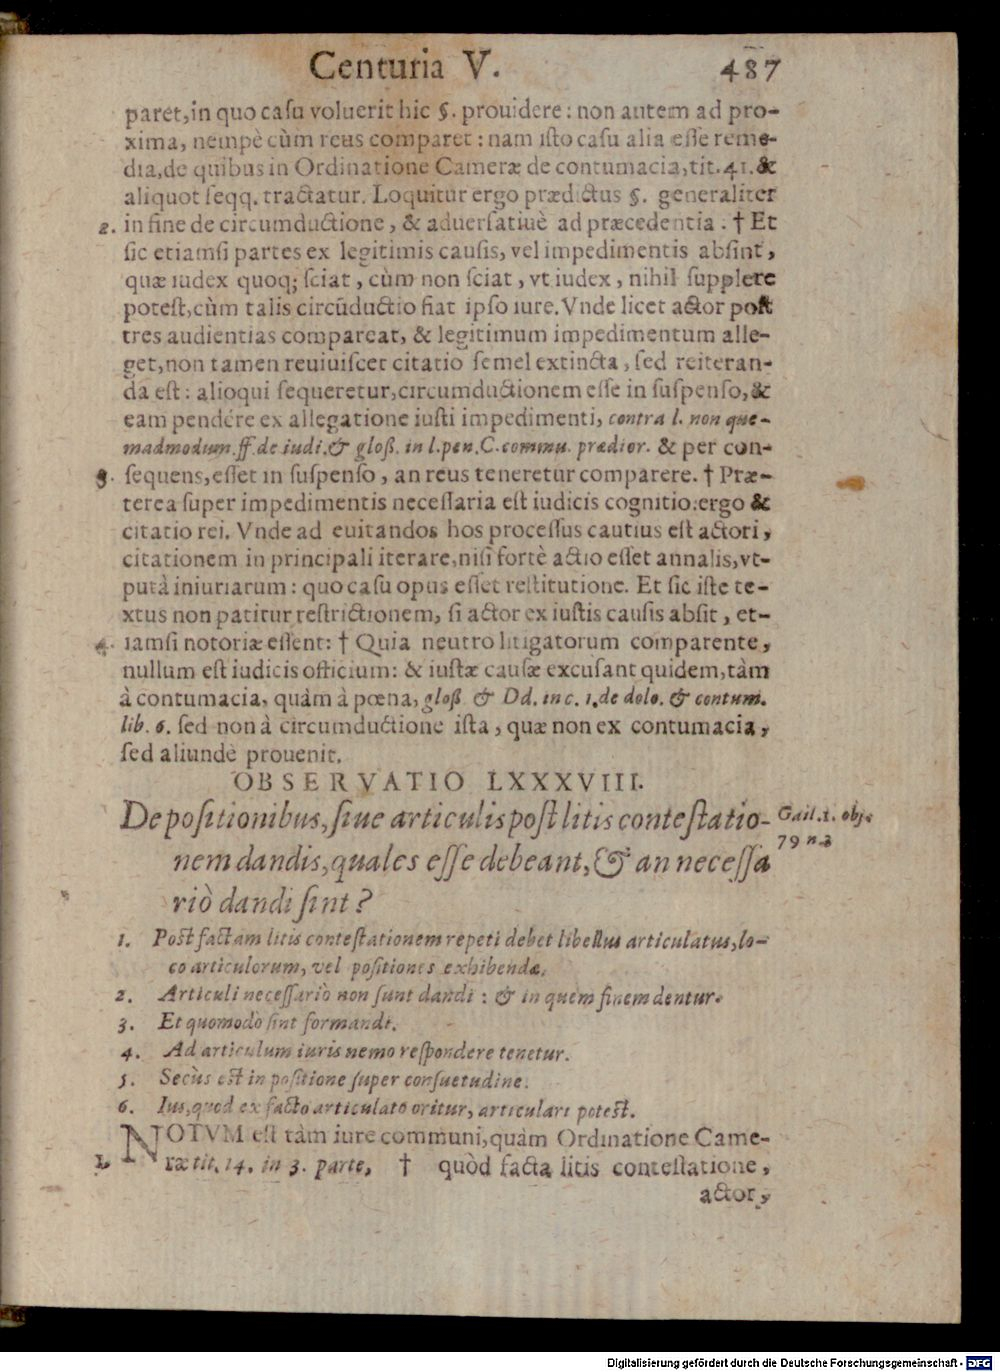 Centuria V. 487
paret, in quo casu voluerit hic §. prouidere: non autem ad pro-
xima, nempè cùm reus comparet: nam isto casu alia esse reme-
dia, de quibus in Ordinatione Cameræ de contumacia, tit. 41. &
aliquot seqq. tractatur. Loquitur ergo prædictus §. generaliter
2. in fine de circumductione, & aduersatiuè ad præcedentia. † Et
sic etiamsi partes ex legitimis causis, vel impedimentis absint,
quæ iudex quoq; sciat, cùm non sciat, vt iudex, nihil supplere
potest, cùm talis circũductio fiat ipso iure. Vnde licet actor post
tres audientias compareat, & legitimum impedimentum alle-
get, non tamen reuiuiscet citatio semel extincta, sed reiteran-
da est: alioqui sequeretur, circumductionem esse in suspenso, &
eam pendére ex allegatione iusti impedimenti, contra l. non que-
madmodum. ff. de iudi. & gloß. in l. pen. C. commu. prædior. & per con-
3. sequens, esset in suspenso, an reus teneretur comparere. † Præ-
terea super impedimentis necessaria est iudicis cognitio: ergo &
citatio rei. Vnde ad euitandos hos processus cautius est actori,
citationem in principali iterare, nisi fortè actio esset annalis, vt-
putà iniuriarum: quo casu opus esset restitutione. Et sic iste te-
xtus non patitur restrictionem, si actor ex iustis causis absit, et-
4. iamsi notoriæ essent: † Quia neutro litigatorum comparente,
nullum est iudicis officium: & iustæ causæ excusant quidem, tàm
à contumacia, quàm à pœna, gloß. & Dd. in c. 1. de dolo. & contum.
lib. 6. sed non à circumductione ista, quæ non ex contumacia,
sed aliundè prouenit.
OBSERVATIO LXXXVIII.
De positionibus, siue articulis post litis contestatio-
Gail. 1. obs.
79 n. 3
nem dandis, quales esse debeant, & an necessa
riò dandi sint?
1. Post factam litis contestationem repeti debet libellus articulatus, lo-
co articulorum, vel positiones exhibendæ.
2. Articuli necessariò non sunt dandi: & in quem finem dentur.
3. Et quomodò sint formandi.
4. Ad articulum iuris nemo respondere tenetur.
5. Secùs est in positione super consuetudine.
6. Ius, quod ex facto articulato oritur, articulari potest.
NOTVM est tàm iure communi, quàm Ordinatione Came-
1. ræ tit. 14. in 3. parte, † quòd facta litis contestatione,
actor,
Digitalisierung gefördert durch die Deutsche Forschungsgemeinschaft - DFG